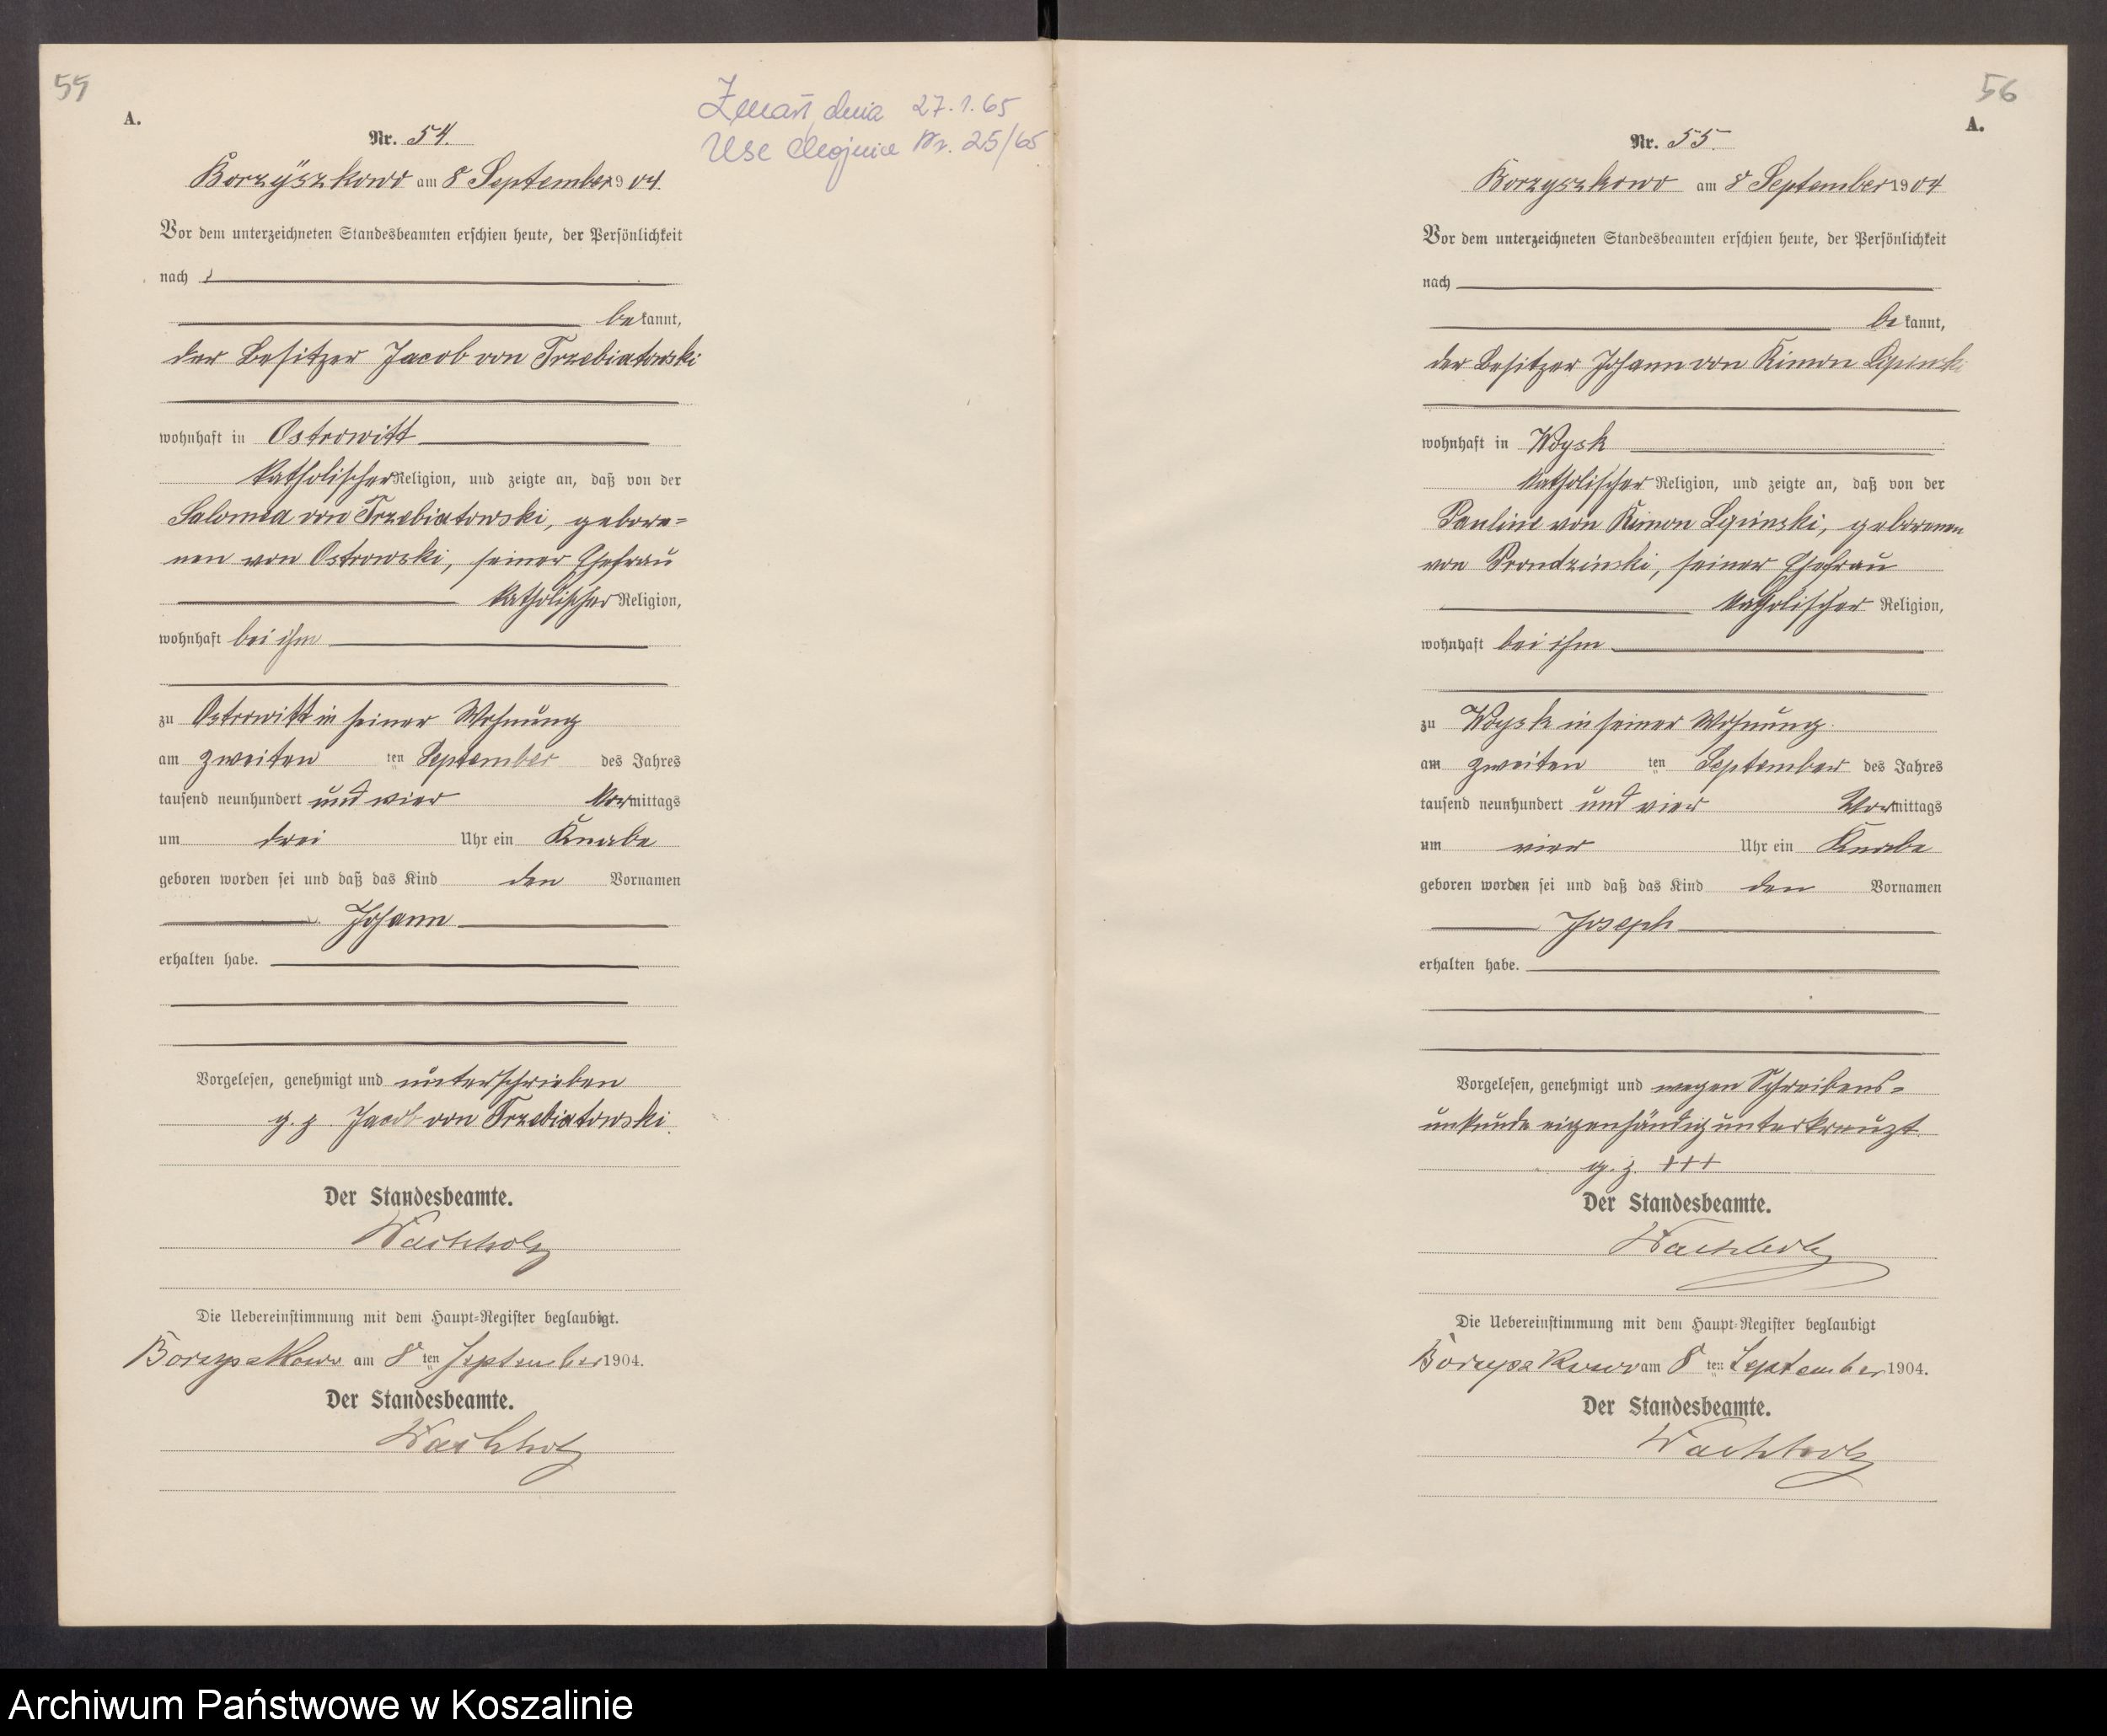 55
A.
Nr. 54.
Borzyszkowo am 8 September 1904.
Zmarł dnia 27.1.65
USC Chojnice Nr. 25/65
Vor dem unterzeichneten Standesbeamten erschien heute, der Persönlichkeit
nach
bekannt,
der Besitzer Jacob von Trzebiatowski
wohnhaft in Ostrowitt
katholischer Religion, und zeigte an, daß von der
Salomea von Trzebiatowski, gebore=
nen von Ostrowski, seiner Ehefrau
katholischer Religion,
wohnhaft bei ihm
zu Ostrowitt in seiner Wohnung
am zweiten ten September des Jahres
tausend neunhundert und vier Vormittags
um drei Uhr ein Knabe
geboren worden sei und daß das Kind den Vornamen
Johann
erhalten habe.
Vorgelesen, genehmigt und unterschrieben
g. z. Jacob von Trzebiatowski
Der Standesbeamte.
Wachholz
Die Uebereinstimmung mit dem Haupt=Register beglaubigt.
Borzyszkowo am 8 ten September 1904.
Der Standesbeamte.
Wachholz
56
A.
Nr. 55.
Borzyszkowo am 8 September 1904
Vor dem unterzeichneten Standesbeamten erschien heute, der Persönlichkeit
nach
bekannt,
der Besitzer Johann von Kimon Lipinski
wohnhaft in Woysk
katholischer Religion, und zeigte an, daß von der
Pauline von Kimon Lipinski, geborenen
von Prondzinski, seiner Ehefrau
katholischer Religion,
wohnhaft bei ihm
zu Woysk in seiner Wohnung
am zweiten ten September des Jahres
tausend neunhundert und vier Vormittags
um vier Uhr ein Knabe
geboren worden sei und daß das Kind den Vornamen
Joseph
erhalten habe.
Vorgelesen, genehmigt und wegen Schreibens=
unkunde eigenhändig unterkreuzt
g. z. +++
Der Standesbeamte.
Wachholz
Die Uebereinstimmung mit dem Haupt=Register beglaubigt
Borzyszkowo am 8 ten September 1904.
Der Standesbeamte.
Wachholz
Archiwum Państwowe w Koszalinie